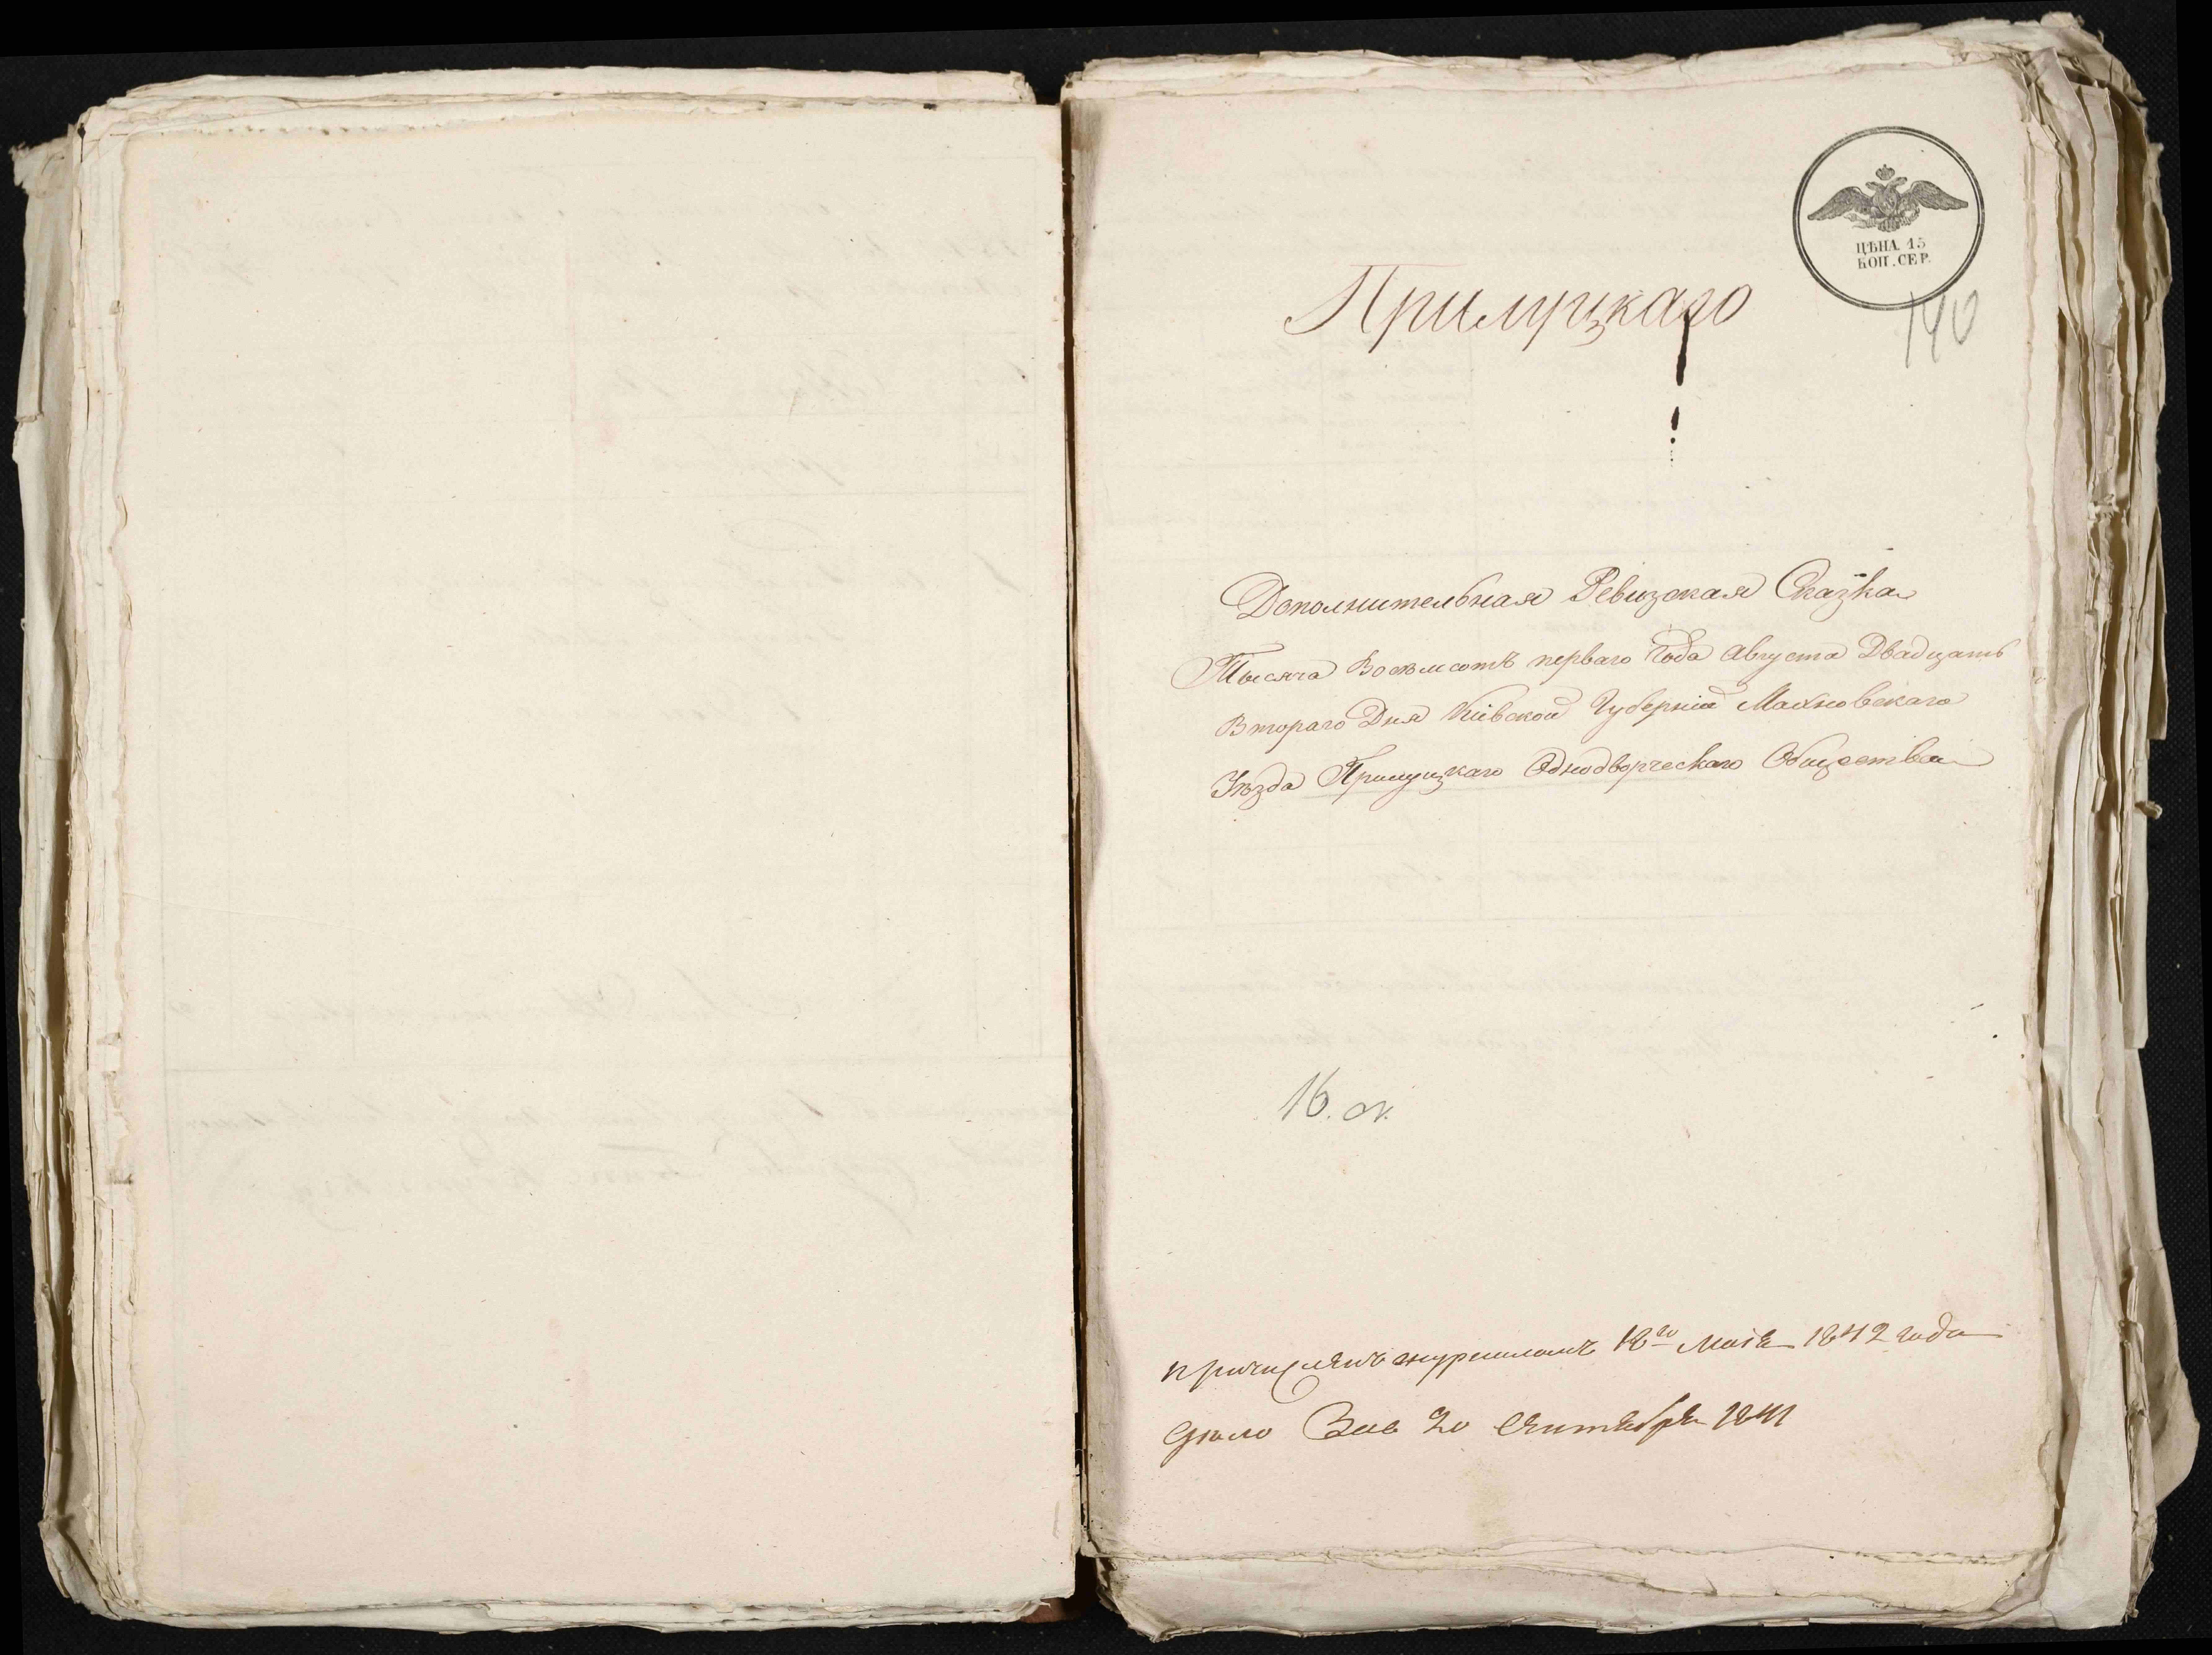 ЦѢНА 15
КОП. СЕР.
140
Прилуцкаго
Дополнительная Ревизская Сказка
Тысяча Восемсотъ перваго Года Августа Двадцать
Втораго Дня Кіевской Губерніи Махновскаго
Уѣзда Прилуцкаго Однодворческаго Общества
16.
18го Маія 1842 года
20 Сентября 1841